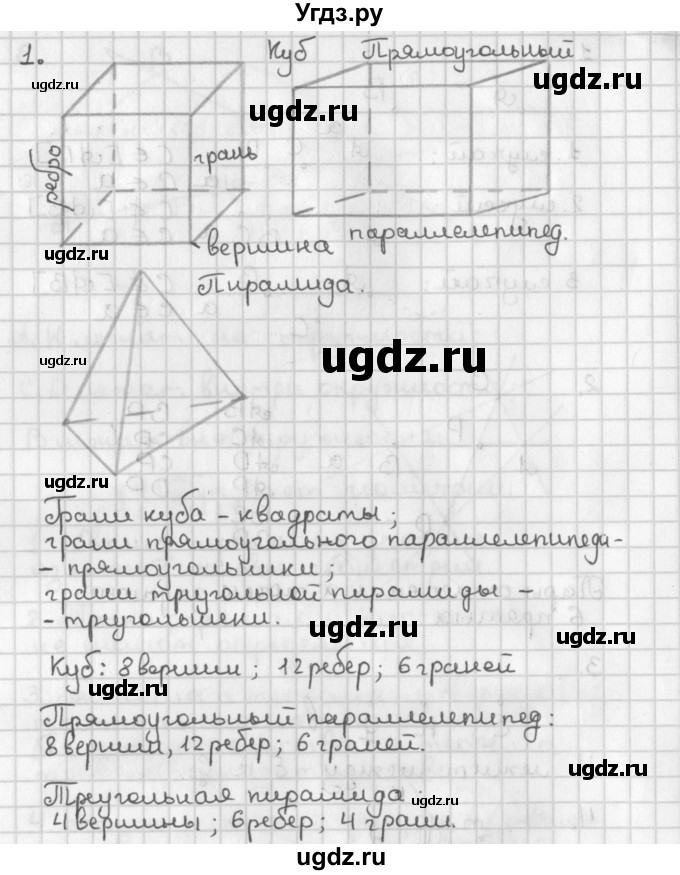 Угдз.ру
1.
Куб
Прямоугольный
ugdz.ru
ugdz.ru
ребро
грань
ugdz.ru
вершина
параллелепипед.
ugdz.ru
Пирамида.
ugdz.ru
ugdz.ru
ugdz.ru
Грани куба - квадраты;
грани прямоугольного параллелепипеда-
- прямоугольники;
грани треугольной пирамиды -
- треугольники.
ugdz.ru
ugdz.ru
Куб: 8 вершин; 12 ребер; 6 граней
ugdz.ru
Прямоугольный параллелепипед:
8 вершин, 12 ребер; 6 граней.
ugdz.ru
ugdz.ru
Треугольная пирамида:
4 вершины; 6 ребер; 4 грани.
ugdz.ru
ugdz.ru